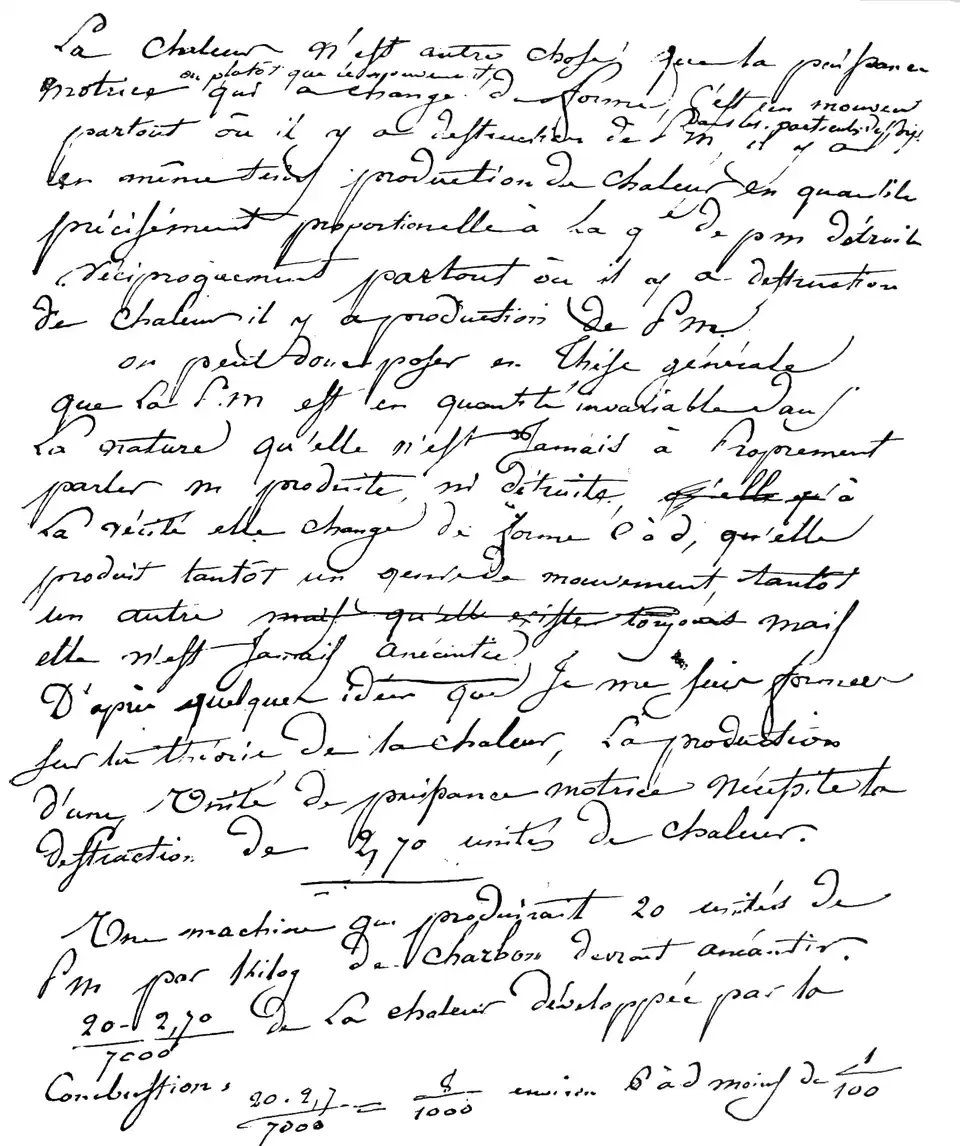 La chaleur n'est autre chose que la puissance
motrice ou plutôt que le mouvement qui a changé de forme, C'est un mouvement
dans les particules des corps
partout où il y a destruction de P.m, il y a
en même tems production de chaleur en quantité
précisément proportionelle à la q.té de p m détruite
réciproquement partout où il y a destruction
de chaleur il y a production de P m.
on peut donc poser en Thèse générale
que La P.m est en quantité invariable dans
La nature qu'elle n'est Jamais à Proprement
parler ni produite, ni détruite, qu'elle qu'à
La vérité elle change de forme C à d, qu'elle
produit tantôt un genre de mouvement, tantôt
un autre mais qu'elle existe toujours mais
elle n'est Jamais anéantie
D'après quelques idées que Je me suis formées
sur la théorie de la chaleur, La production
d'une Unité de puissance motrice Nécessite la
destruction de 2,70 unités de chaleur.
Une machine qui produirait 20 unités de
P m par kilog de charbon devrait anéantir
20-2,70/7000 de La chaleur développée par la
Combustion, 20.2,7/7000 = 8/1000 environ C à d moins de 1/100